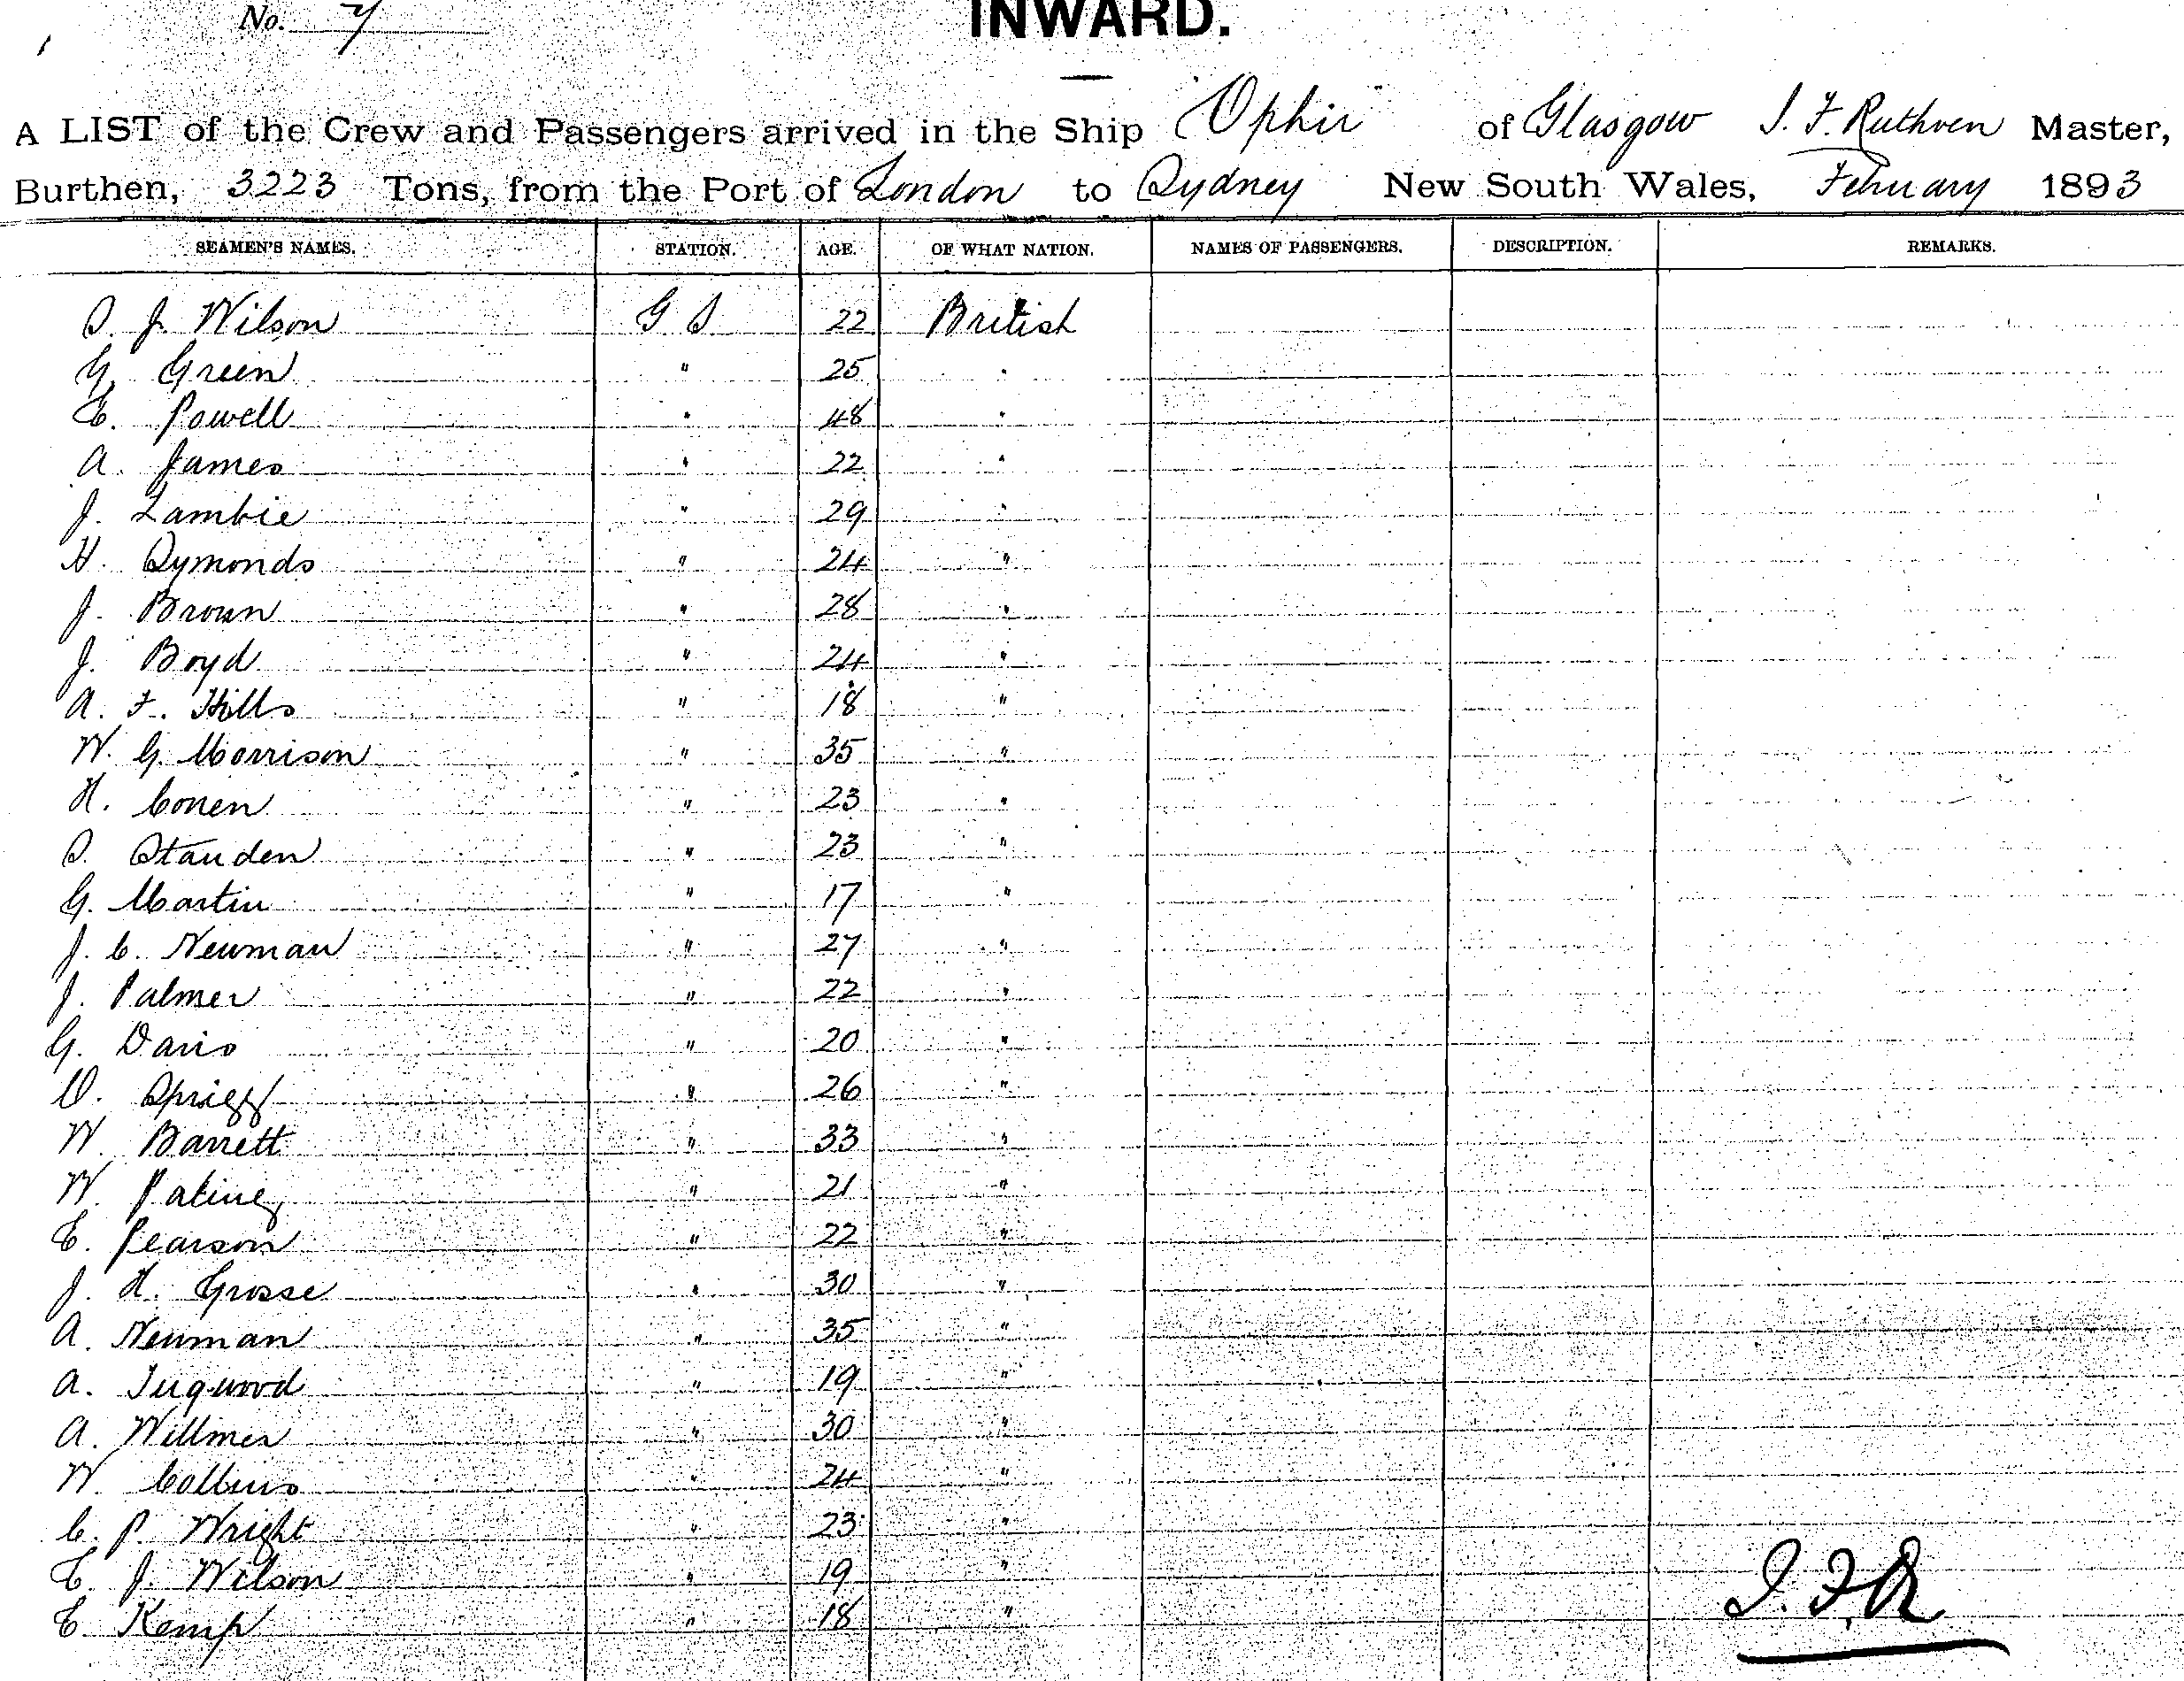 No. 7
INWARD.
A LIST of the Crew and Passengers arrived in the Ship Ophir of Glasgow J. F. Ruthven Master,
Burthen, 3223 Tons, from the Port of London to Sydney New South Wales, February 1893
SEAMEN'S NAMES. STATION. AGE. OF WHAT NATION. NAMES OF PASSENGERS. DESCRIPTION. REMARKS.
S. J. Wilson G S 22 British
G. Green " 25 "
E. Powell " 48 "
A. James " 22 "
J. Lambie " 29 "
H. Symonds " 24 "
J. Brown " 28 "
J. Boyd " 24 "
A. F. Hills " 18 "
W. G. Morrison " 35 "
H. Conen " 23 "
S. Standen " 23 "
G. Martin " 17 "
J. C. Newman " 27 "
J. Palmer " 22 "
G. Davis " 20 "
D. Sprigg " 26 "
W. Barrett " 33 "
W. " 21 "
E. Pearson " 22 "
J. H. Grosse " 30 "
A. Newman " 35 "
A. Tugwood " 19 "
A. Willmer " 30 "
W. Collins " 24 "
C. P. Wright " 23 "
E. J. Wilson " 19 "
E. Kemp " 18 "
J. F. R